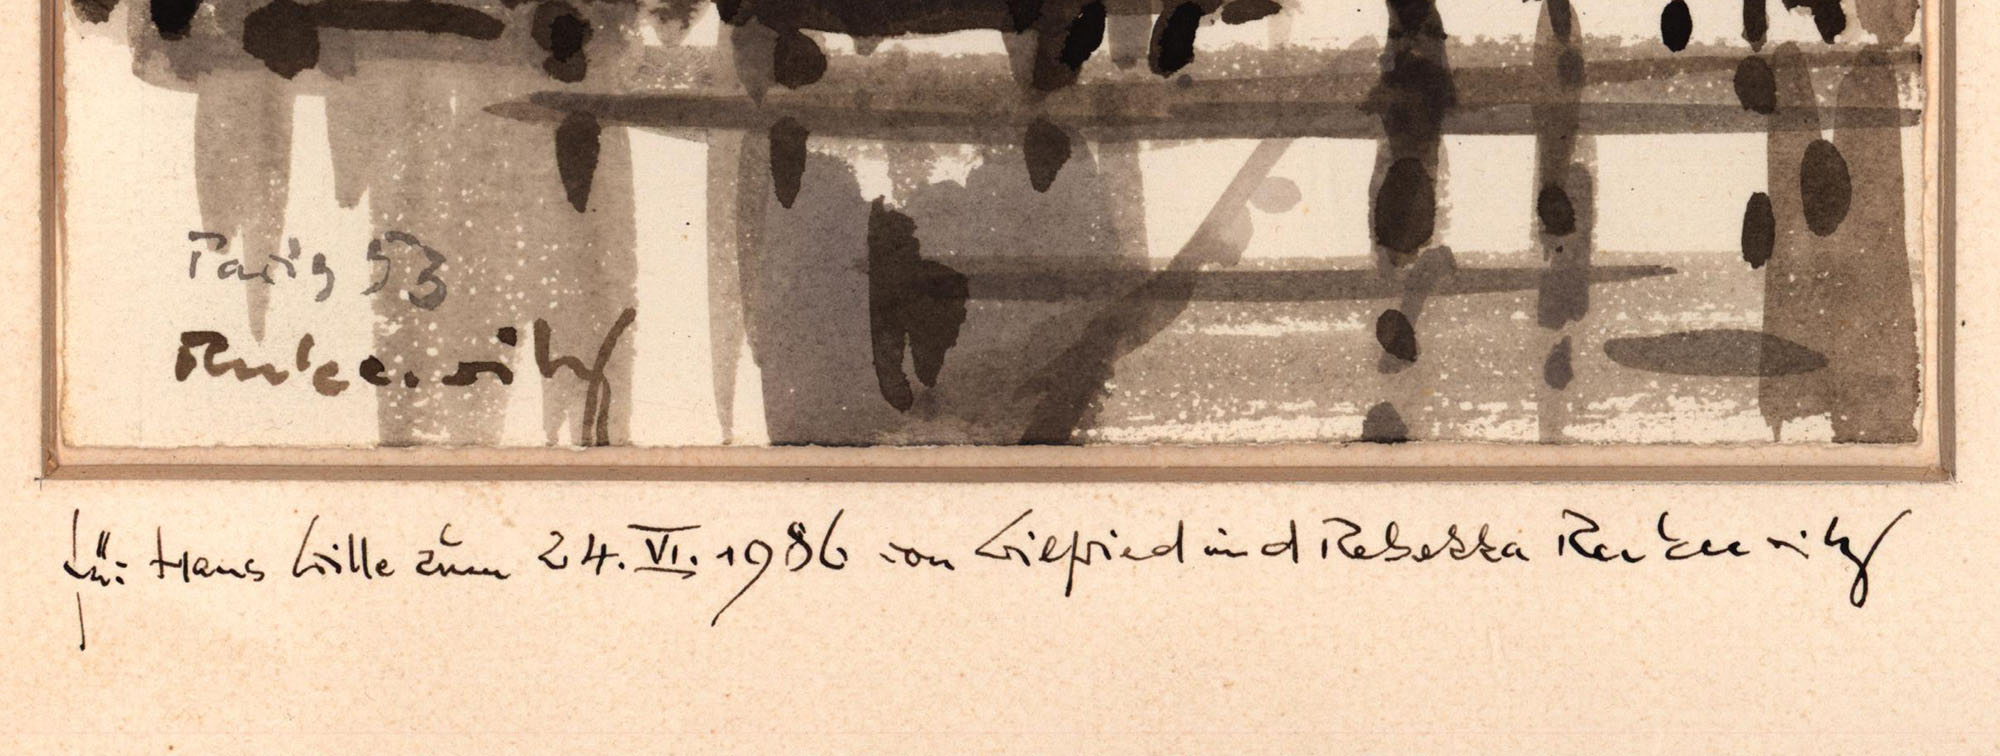 Paris 53
Reutewitz
für Hans Wille zum 24.VI.1986 von Wilfried und Rebekka